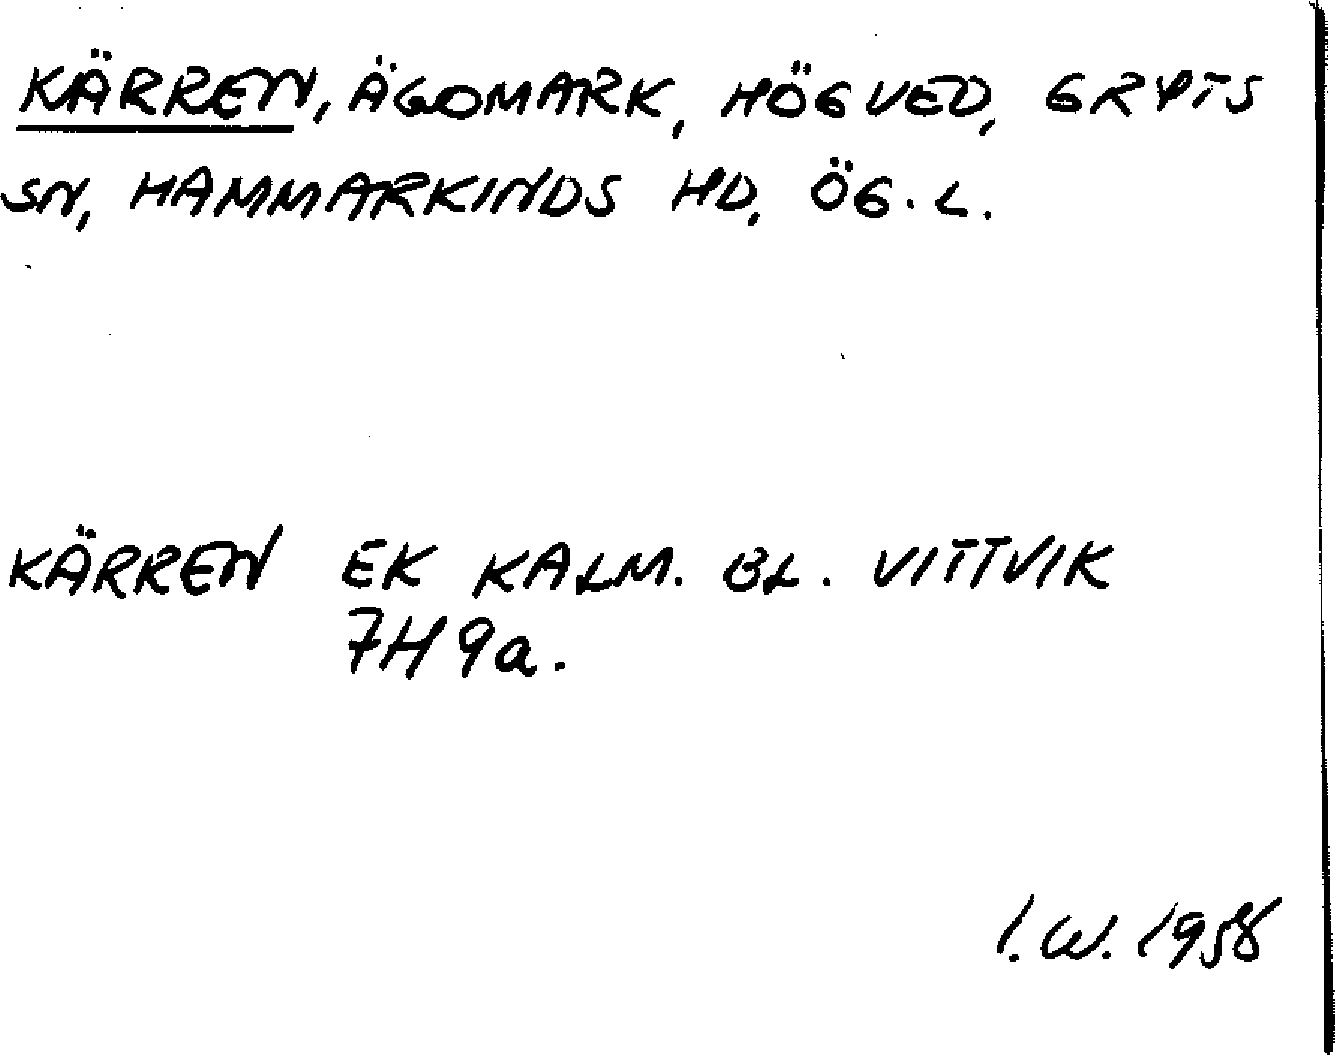 KÄRREN, ÄGOMARK, HÖGVED, GRYTS
SN, HAMMARKINDS HD, ÖG.L.
KÄRREN EK KALM. BL. VITTVIK
7H9a.
I.W. 1958